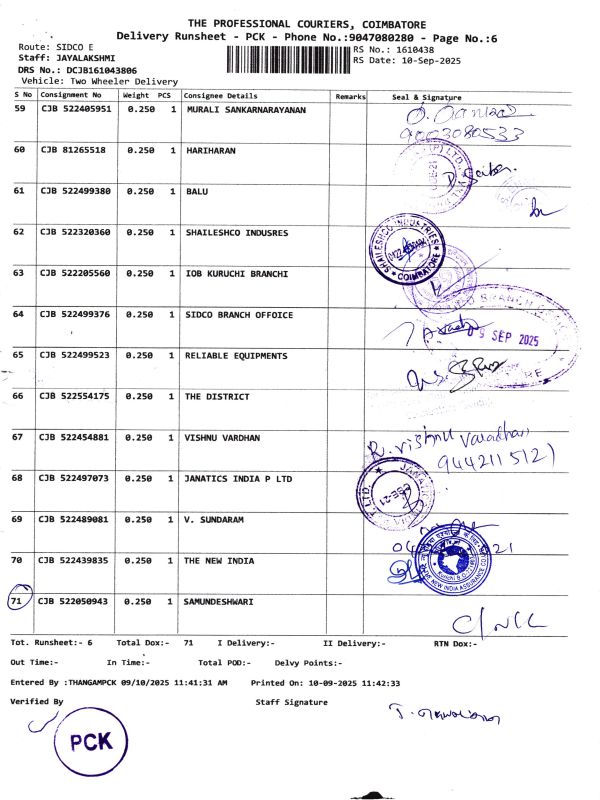 THE PROFESSIONAL COURIERS, COIMBATORE
Delivery Runsheet - PCK - Phone No.:9047080280 - Page No.:6
Route: SIDCO E
RS No.: 1610438
Staff: JAYALAKSHMI
RS Date: 10-Sep-2025
DRS No.: DCJB161043806
Vehicle: Two Wheeler Delivery
S No Consignment No Weight PCS Consignee Details Remarks Seal & Signature
59 CJB 522405951 0.250 1 MURALI SANKARNARAYANAN
9003080533
60 CJB 81265518 0.250 1 HARIHARAN
61 CJB 522499380 0.250 1 BALU
62 CJB 522320360 0.250 1 SHAILESHCO INDUSRES
SHAILESHCO INDUSTRIES
COIMBATORE
63 CJB 522205560 0.250 1 IOB KURUCHI BRANCHI
64 CJB 522499376 0.250 1 SIDCO BRANCH OFFOICE
BRANCH
9 SEP 2025
65 CJB 522499523 0.250 1 RELIABLE EQUIPMENTS
66 CJB 522554175 0.250 1 THE DISTRICT
67 CJB 522454881 0.250 1 VISHNU VARDHAN
R. Vishnu Varadhan
9442115121
68 CJB 522497073 0.250 1 JANATICS INDIA P LTD
69 CJB 522489081 0.250 1 V. SUNDARAM
70 CJB 522439835 0.250 1 THE NEW INDIA
NEW INDIA ASSURANCE CO
71 CJB 522050943 0.250 1 SAMUNDESHWARI
Tot. Runsheet:- 6 Total Dox:- 71 I Delivery:- II Delivery:- RTN Dox:-
Out Time:- In Time:- Total POD:- Delvy Points:-
Entered By :THANGAMPCK 09/10/2025 11:41:31 AM Printed On: 10-09-2025 11:42:33
Verified By Staff Signature
PCK